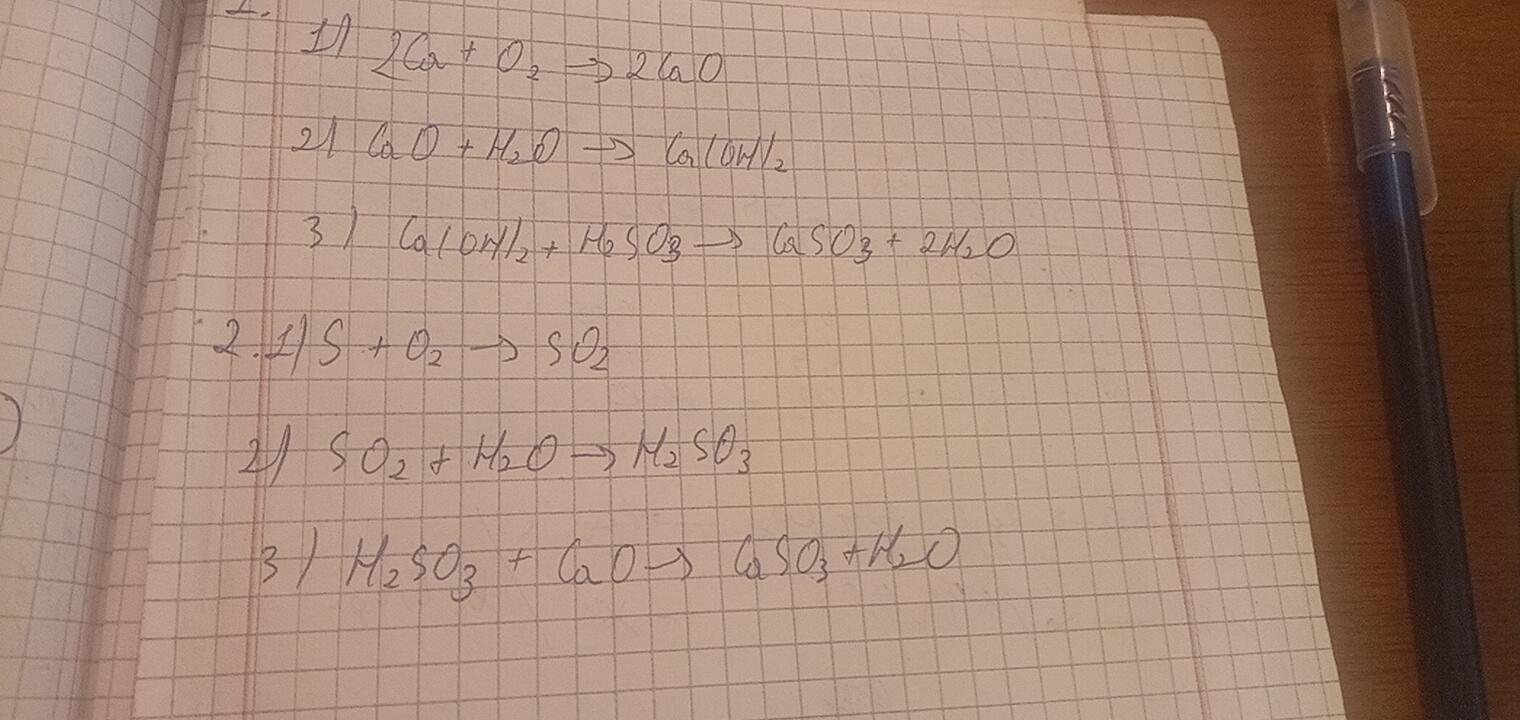 1.
1) 2Ca + O₂ → 2CaO
2) CaO + H₂O → Ca(OH)₂
3) Ca(OH)₂ + H₂SO₃ → CaSO₃ + 2H₂O
2. 1) S + O₂ → SO₂
2) SO₂ + H₂O → H₂SO₃
3) H₂SO₃ + CaO → CaSO₃ + H₂O